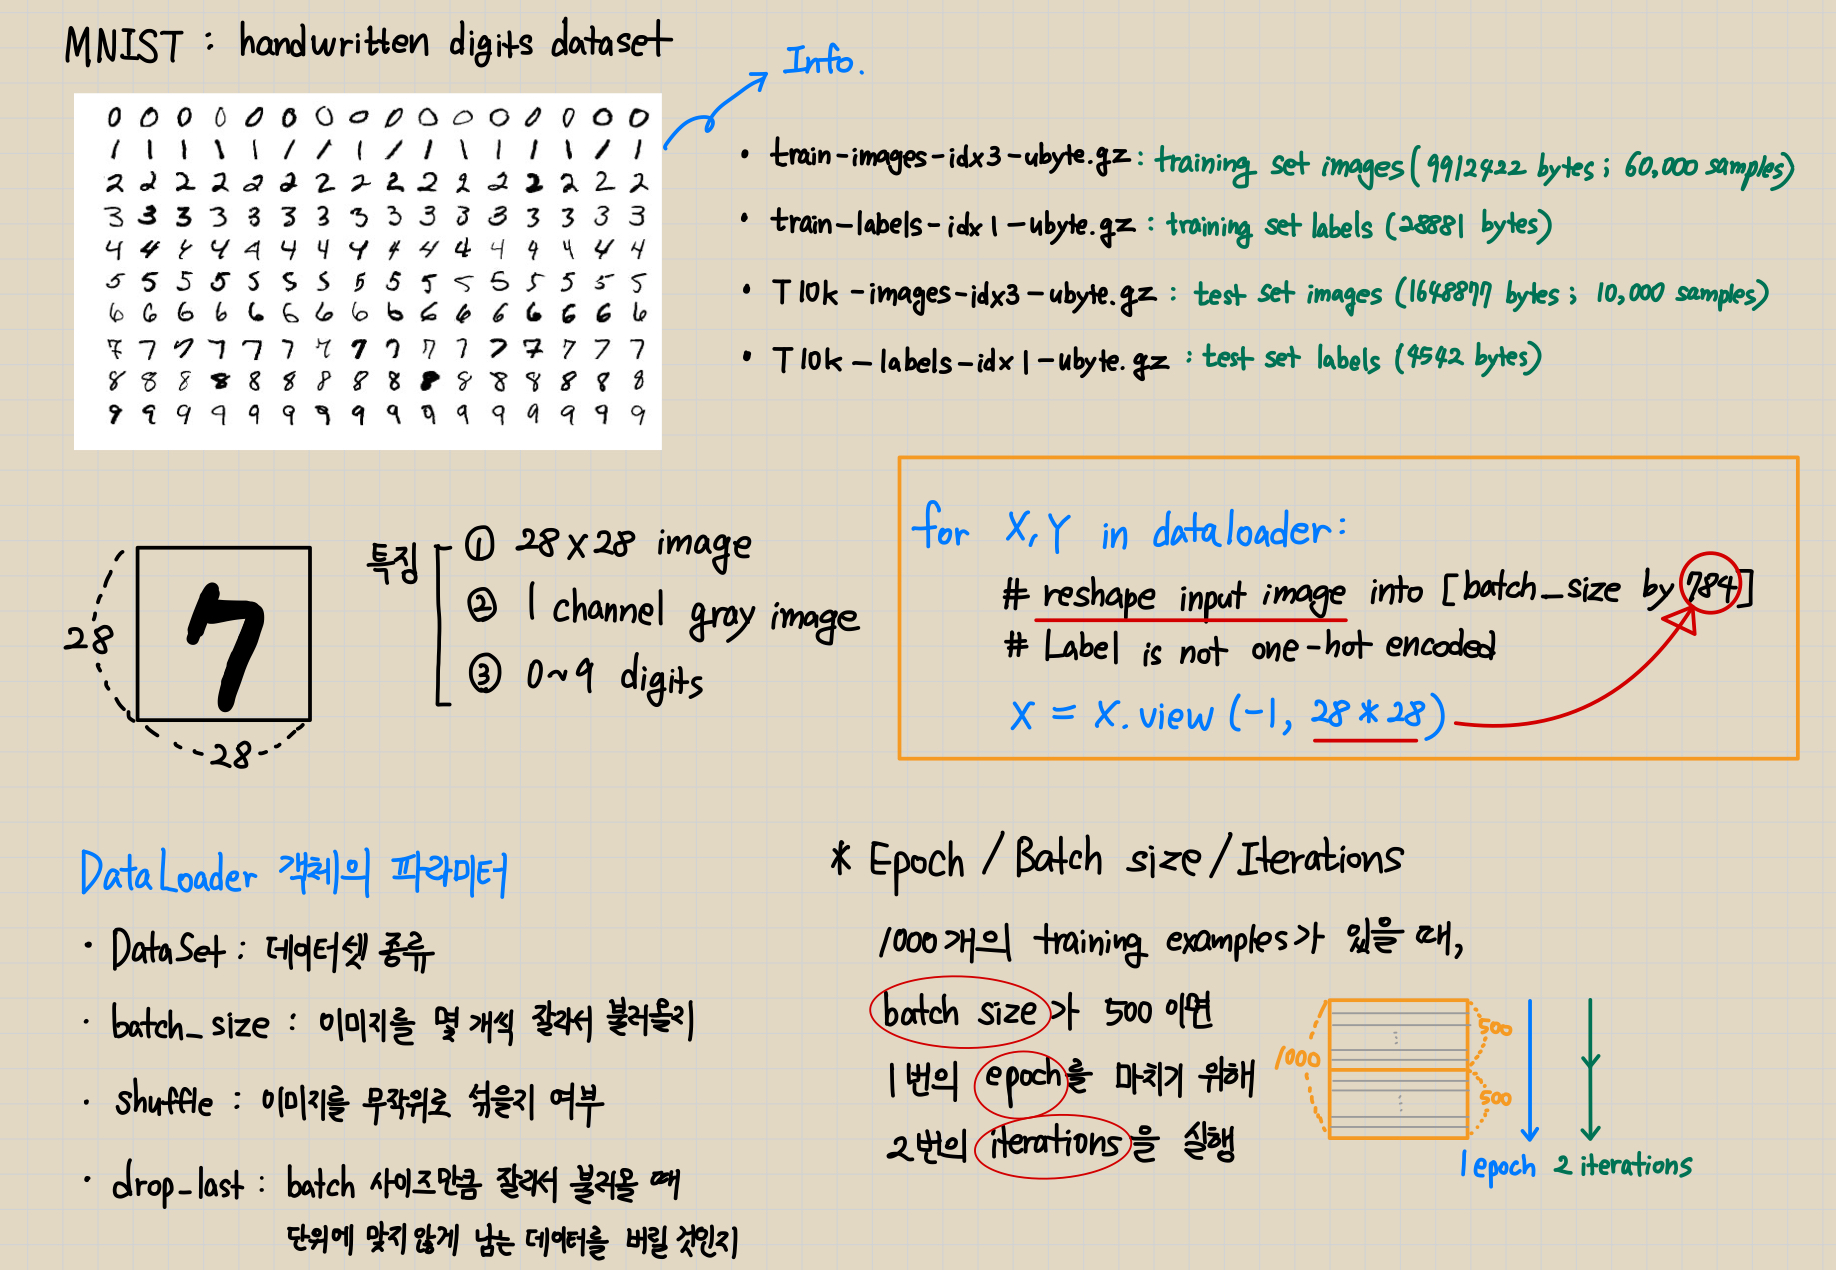 MNIST : handwritten digits dataset
Info.
0 0 0 0 0 0 0 0 0 0 0 0 0 0 0 0
1 1 1 1 1 1 1 1 1 1 1 1 1 1 1 1
2 2 2 2 2 2 2 2 2 2 2 2 2 2 2 2
3 3 3 3 3 3 3 3 3 3 3 3 3 3 3 3
4 4 4 4 4 4 4 4 4 4 4 4 4 4 4 4
5 5 5 5 5 5 5 5 5 5 5 5 5 5 5 5
6 6 6 6 6 6 6 6 6 6 6 6 6 6 6 6
7 7 7 7 7 7 7 7 7 7 7 7 7 7 7 7
8 8 8 8 8 8 8 8 8 8 8 8 8 8 8 8
9 9 9 9 9 9 9 9 9 9 9 9 9 9 9 9
• train-images-idx3-ubyte.gz : training set images (9912422 bytes ; 60,000 samples)
• train-labels-idx1-ubyte.gz : training set labels (28881 bytes)
• T10k-images-idx3-ubyte.gz : test set images (1648877 bytes ; 10,000 samples)
• T10k-labels-idx1-ubyte.gz : test set labels (4542 bytes)
7
28
28
특징
① 28x28 image
② 1 channel gray image
③ 0~9 digits
for X, Y in dataloader:
# reshape input image into [batch_size by 784]
# Label is not one-hot encoded
X = X.view(-1, 28*28)
DataLoader 객체의 파라미터
• DataSet : 데이터셋 종류
• batch_size : 이미지를 몇 개씩 잘라서 불러올지
• shuffle : 이미지를 무작위로 섞을지 여부
• drop_last : batch 사이즈만큼 잘라서 불러올 때
단위에 맞지 않게 남는 데이터를 버릴 것인지
* Epoch / Batch size / Iterations
1000개의 training examples가 있을 때,
batch size가 500 이면
1번의 epoch를 마치기 위해
2번의 iterations을 실행
1000
500
500
1 epoch
2 iterations